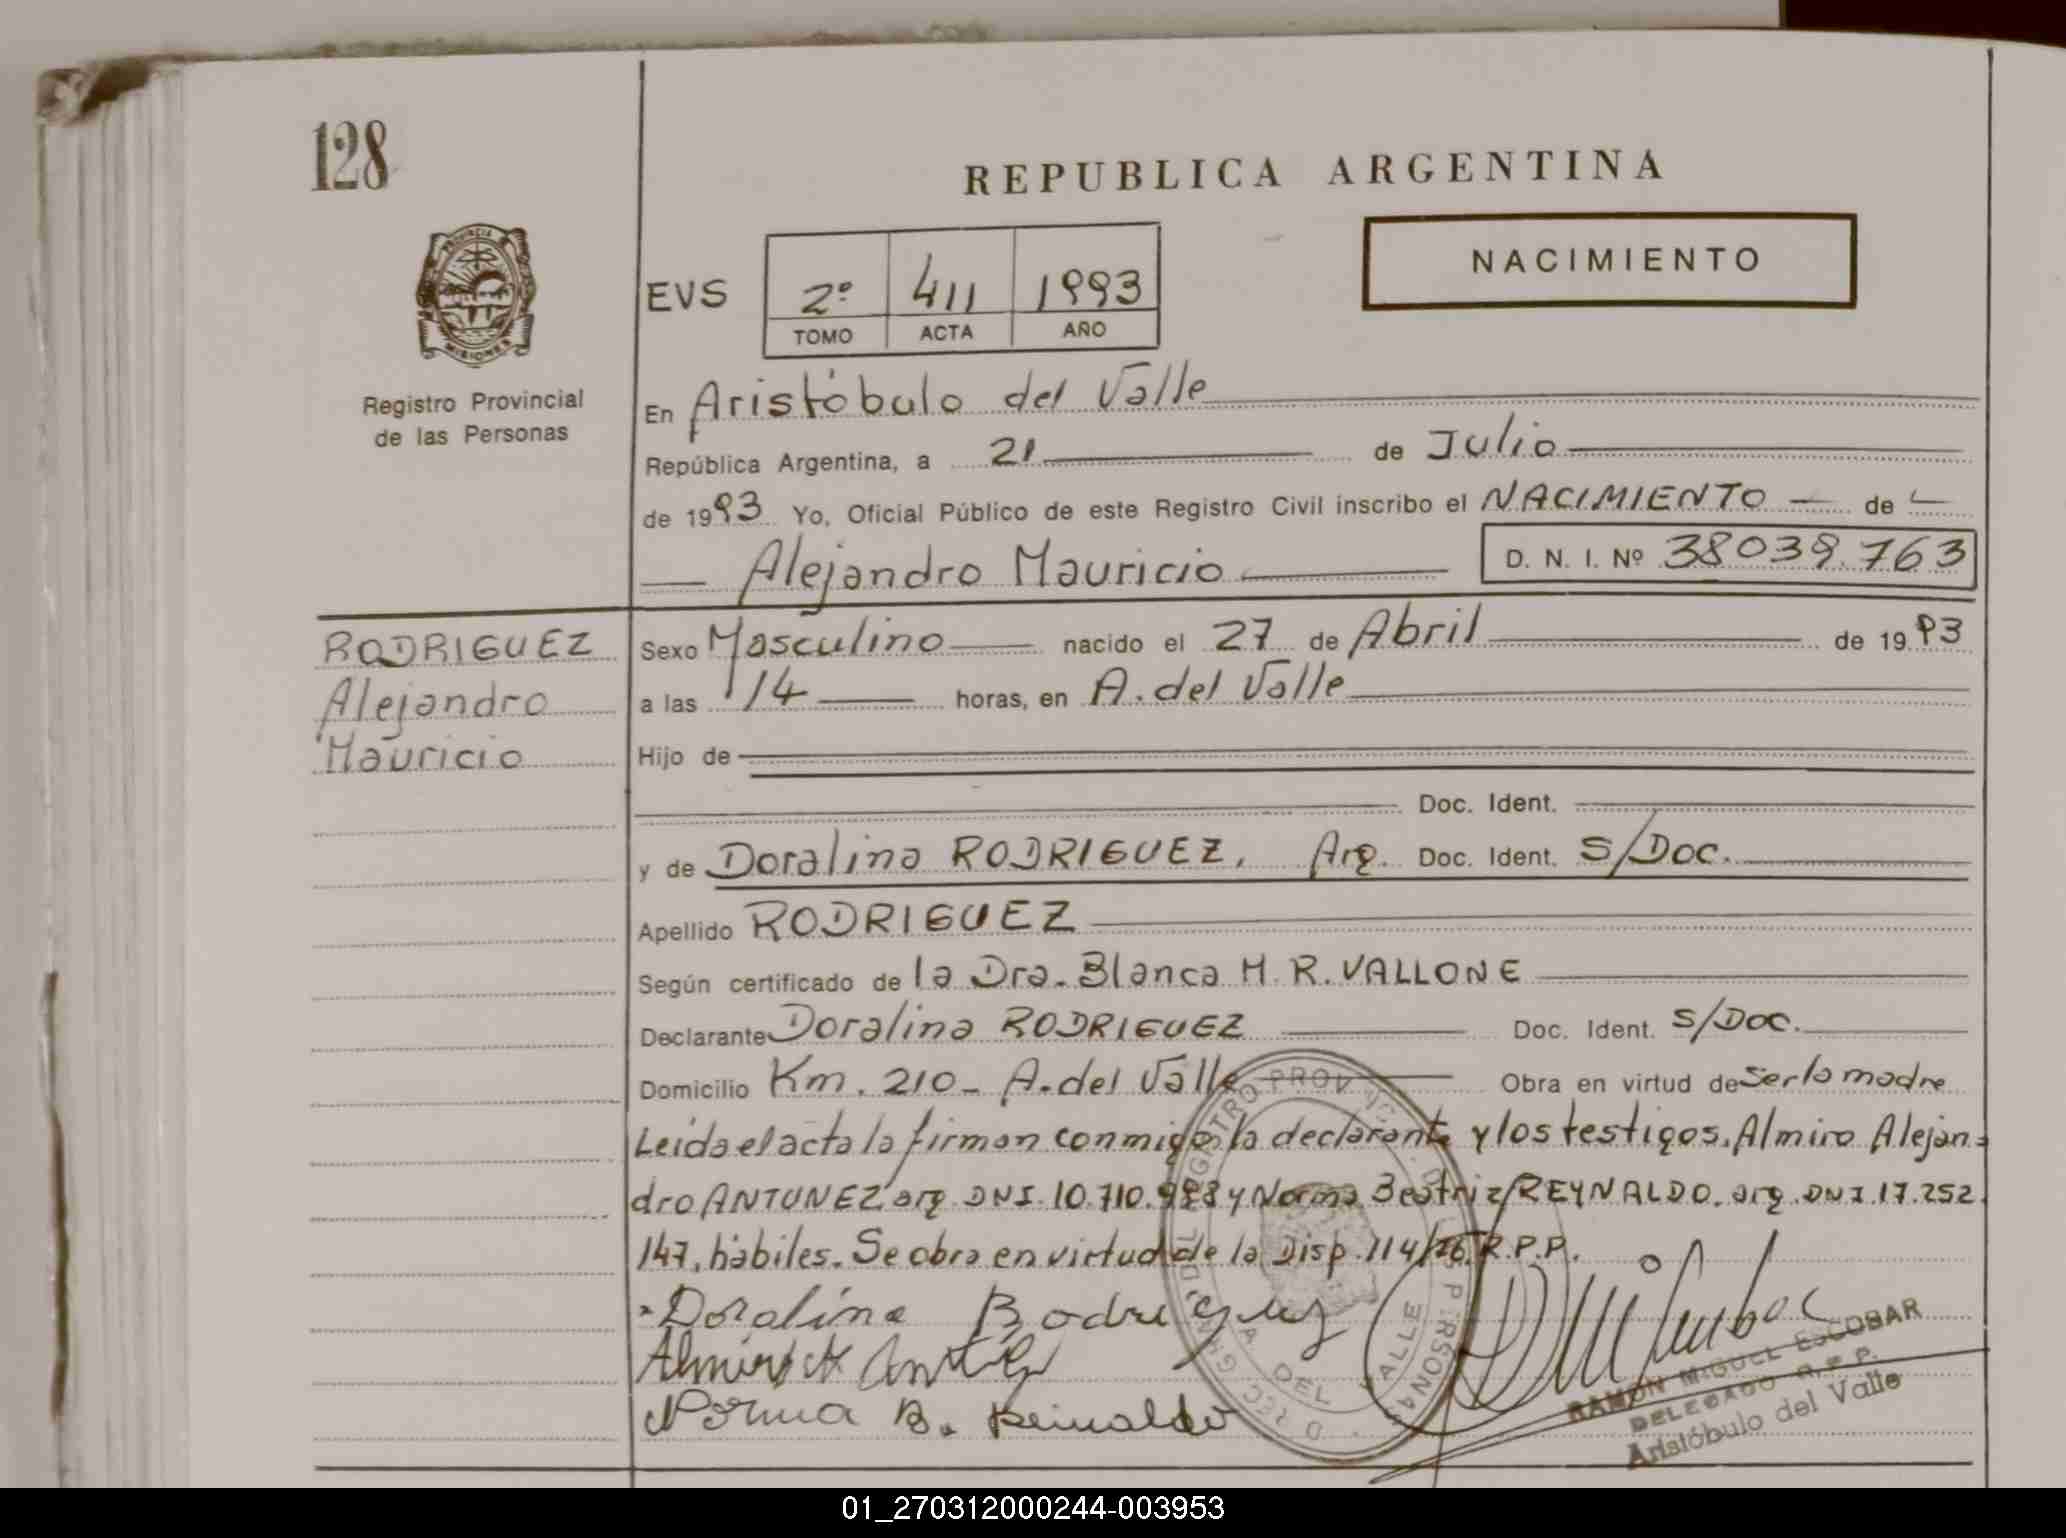 128
REPUBLICA ARGENTINA
NACIMIENTO
PROVINCIA
MISIONES
Registro Provincial
de las Personas
EVS
2º 411 1993
TOMO ACTA AÑO
En Aristóbulo del Valle
República Argentina, a 21 de Julio
de 1993 Yo, Oficial Público de este Registro Civil inscribo el NACIMIENTO de
Alejandro Mauricio D. N. I. Nº 38039.763
RODRIGUEZ
Alejandro
Mauricio
Sexo Masculino nacido el 27 de Abril de 1993
a las 14 horas, en A. del Valle
Hijo de
Doc. Ident.
y de Doralina RODRIGUEZ. Arg. Doc. Ident. S/Doc.
Apellido RODRIGUEZ
Según certificado de la Dra. Blanca M. R. VALLONE
Declarante Doralina RODRIGUEZ Doc. Ident. S/Doc.
Domicilio Km. 210 - A. del Valle Obra en virtud de Ser la madre
Leída el acta la firman conmigo, la declarante y los testigos. Almiro Alejan-
dro ANTUNEZ arg. DNI. 10.710. y Norma Beatriz REYNALDO. arg. DNI. 17.252.
147, hábiles. Se obra en virtud de la Disp. 114/76. R.P.P.
Doralina Rodriguez
Norma B. Reinaldo
RAMON MIGUEL ESCOBAR
DELEGADO R.P.P.
Aristóbulo del Valle
01_270312000244-003953